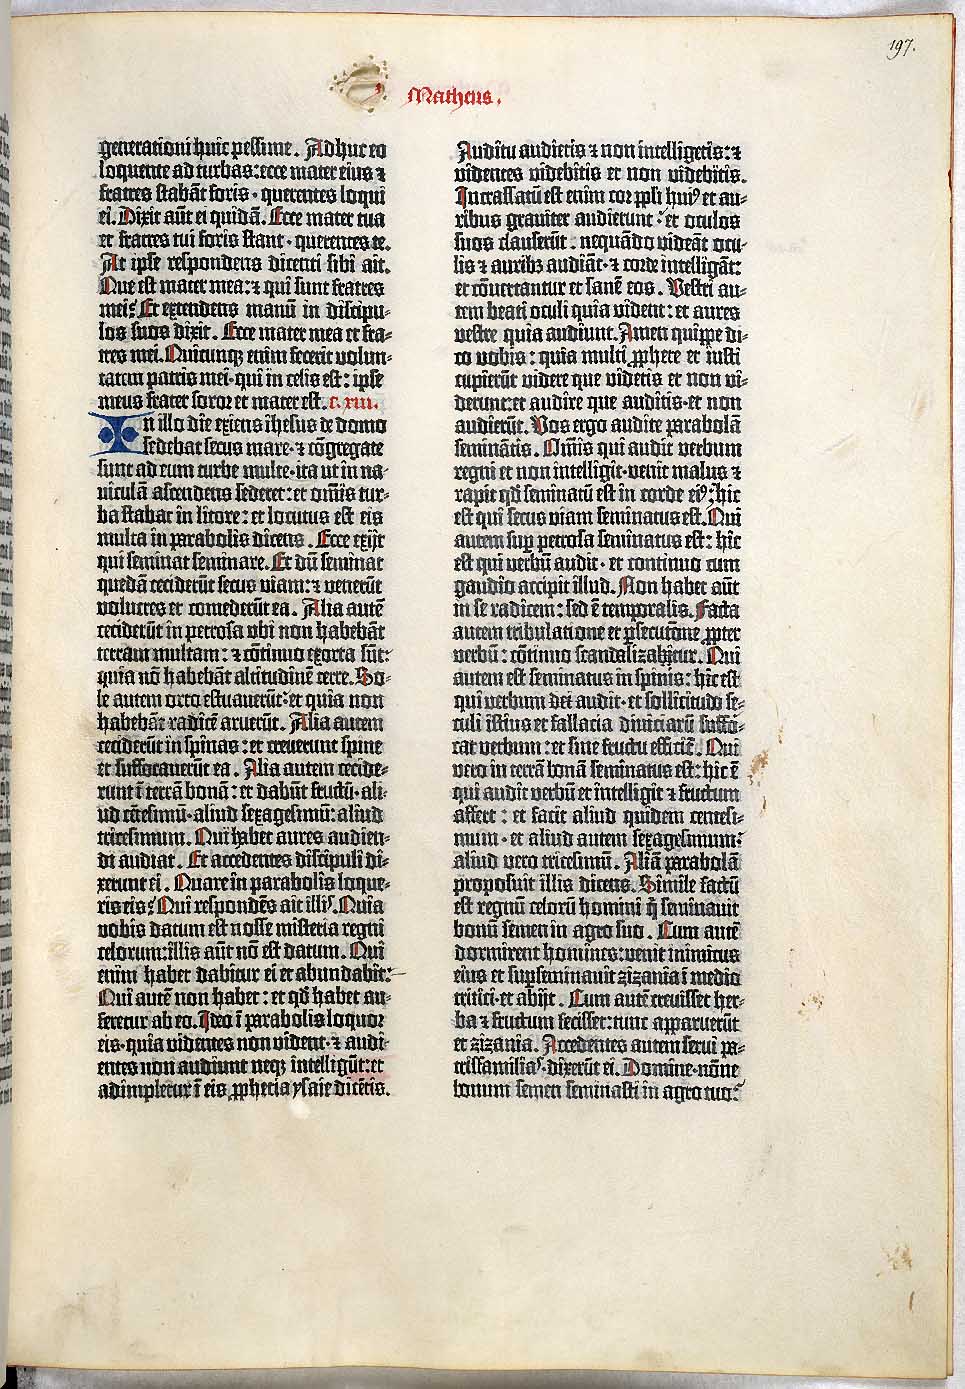 197.
Matheus.
generationi huic pessime. Adhuc eo
loquente ad turbas: ecce mater eius ⁊
fratres stabāt foris · querentes loqui
ei. Dixit aūt ei quidā. Ecce mater tua
et fratres tui foris stant · querentes te.
At ipse respondens dicenti sibi ait.
Que est mater mea: ⁊ qui sunt fratres
mei? Et extendens manū in discipu-
los suos dixit. Ecce mater mea et fra-
tres mei. Quicunqꝫ enim fecerit volun-
tatem patris mei · qui in celis est: ipse
meus frater soror et mater est. c. xiii.
In illo die exiens ihesus de domo
sedebat secus mare · ⁊ cōgregate
sunt ad eum turbe multe · ita ut in na-
viculā ascendens sederet: et omīs tur-
ba stabat in litore: et locutus est eis
multa in parabolis dicens. Ecce exijt
qui seminat seminare. Et dū seminat
quedā ceciderūt secus viam: ⁊ venerūt
volucres et comederūt ea. Alia autē
ceciderūt in petrosa ubi non habebāt
terram multam: ⁊ cōtinuo exorta sūt:
quia nō habebāt altitudinē terre. So-
le autem orto estuaverūt: et quia non
habebāt radicē aruerūt. Alia autem
ceciderūt in spinas: et creverunt spine
et suffocaverūt ea. Alia autem cecide-
runt ī terrā bonā: et dabūt fructū · ali-
ud cētesimū · aliud sexagesimū: aliud
tricesimum. Qui habet aures audien-
di audiat. Et accedentes discipuli di-
xerunt ei. Quare in parabolis loque-
ris eis? Qui respondēs ait illis. Quia
vobis datum est nosse misteria regni
celorum: illis aūt nō est datum. Qui
enim habet dabitur ei et abundabit:
Qui autē non habet: et qđ habet au-
feretur ab eo. Ideo ī parabolis loquor
eis · quia videntes non vident · ⁊ audi-
entes non audiunt neqꝫ intelligūt: et
adimpletur ī eis ꝓphecia ysaie dicētis.
Auditu audietis ⁊ non intelligetis: ⁊
videntes videbitis et non videbitis.
Incrassatū est enim cor ppli huiꝰ et au-
ribus graviter audierunt: et oculos
suos clauserūt · nequādo videāt ocu-
lis ⁊ auribꝫ audiāt · ⁊ corde intelligāt:
et cōvertantur et sanē eos. Vestri au-
tem beati oculi quia vident: et aures
vestre quia audiunt. Amen quippe di-
co vobis: quia multi ꝓphete et iusti
cupierūt videre que videtis et non vi-
derunt: et audire que auditis · et non
audierūt. Vos ergo audite parabolā
seminātis. Omīs qui audit verbum
regni et non intelligit · venit malus ⁊
rapit qđ seminatū est in corde eiꝰ: hic
est qui secus viam seminatus est. Qui
autem suꝑ petrosa seminatus est: hic
est qui verbū audit · et continuo cum
gaudio accipit illud. Non habet aūt
in se radicem: sed ē temporalis. Facta
autem tribulatione et ꝑsecutōne ꝓpter
verbū: cōtinuo scandalizabitur. Qui
autem est seminatus in spinis: hic est
qui verbum dei audit · et sollicitudo se-
culi istius et fallacia diviciarū suffo-
cat verbum: et sine fructu efficit̄. Qui
vero in terrā bonā seminatus est: hic ē
qui audit verbū et intelligit ⁊ fructum
affert: et facit aliud quidem centesi-
mum · et aliud autem sexagesimum:
aliud vero tricesimū. Aliā parabolā
proposuit illis dicens. Simile factū
est regnū celorū homini q̄ seminavit
bonū semen in agro suo. Cum autē
dormirent homines: venit inimicus
eius et suꝑseminavit zizania ī medio
tritici · et abijt. Cum autē crevisset her-
ba ⁊ fructum fecisset: tunc apparuerūt
et zizania. Accedentes autem servi pa-
trisfamilias · dixerūt ei. Domine · nōne
bonum semen seminasti in agro tuo?